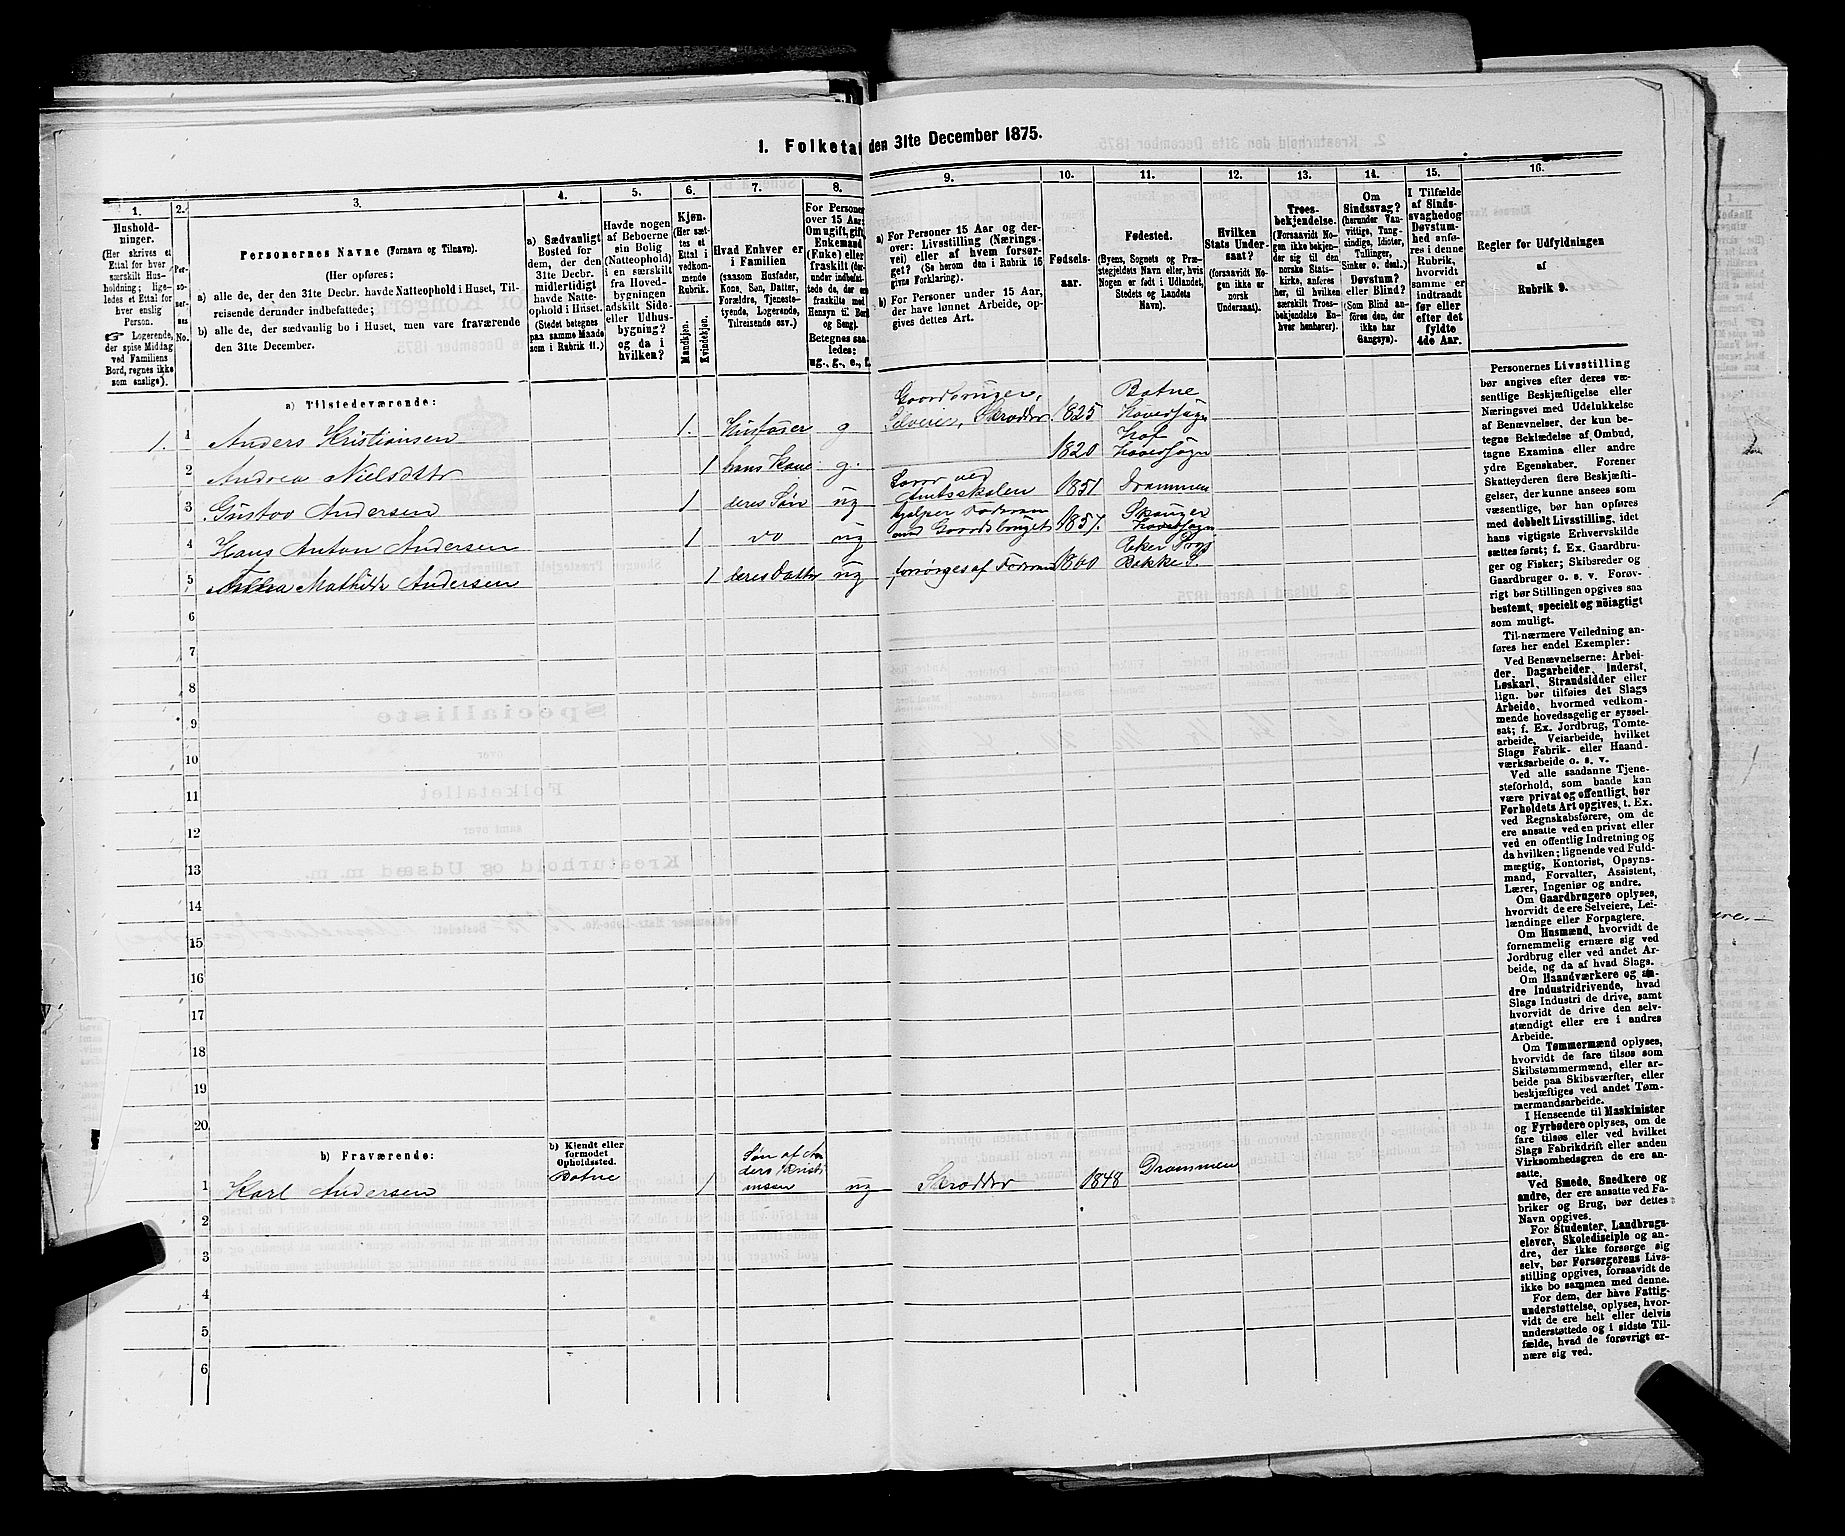 1. Folketal den 31te December 1875.
1. 2. 3. 4. 5. 6. 7. 8. 9. 10. 11. 12. 13. 14. 15. 16.
Hushold-
ninger.
(Her skrives et
Ettal for hver
særskilt Hus-
holdning; lige-
ledes et Ettal for
hver enslig
Person.
☞ Logerende,
der spise Middag
ved Familiens
Bord, regnes ikke
som enslige).
Per-
so-
ner-
nes
No.
Personernes Navne (Fornavn og Tilnavn).
(Her opføres:
a) alle de, der den 31te Decbr. havde Natteophold i Huset, Til-
reisende derunder indbefattede;
b) alle de, der sædvanlig bo i Huset, men vare fraværende
den 31te December.
a) Sædvanligt
Bosted for
dem, der den
31te Decbr.
midlertidigt
havde Natte-
ophold i Huset.
(Stedet betegnes
paa samme Maade
som i Rubrik 11.)
Havde nogen
af Beboerne
sin Bolig
(Natteophold)
i en særskilt
fra Hoved-
bygningen
adskilt Side-
eller Udhus-
bygning?
og da i
hvilken?
Kjøn.
(Her sæt-
tes et
Ettal i
vedkom-
mende
Rubrik.
Mandkjøn.
Kvindekjøn.
Hvad Enhver er
i Familien
(saasom Husfader,
Kone, Søn, Datter,
Forældre, Tjeneste-
tyende, Logerende,
Tilreisende osv.)
For Personer
over 15 Aar:
Om ugift, gift,
Enkemand
(Enke) eller
fraskilt (der-
under indbefat-
tede de, der ere
fraskilte med
Hensyn til Bord
og Seng).
Betegnes saa-
ledes:
ug., g., e., f.
a) For Personer 15 Aar og der-
over: Livsstilling (Nærings-
vei) eller af hvem forsør-
get? (Se herom den i Rubrik 16
givne Forklaring).
b) For Personer under 15 Aar,
der have lønnet Arbeide, op-
gives dettes Art.
Fødsels-
aar.
Fødested.
(Byens, Sognets og Præ-
stegjeldets Navn eller, hvis
Nogen er født i Udlandet,
Stedets og Landets
Navn).
Hvilken
Stats Under-
saat?
(forsaavidt No-
gen ikke er
norsk
Undersaat).
Troes-
bekjendelse.
(Forsaavidt No-
gen ikke bekjen-
der sig til den
norske Stats-
kirke, anføres
her, til hvilken
særskilt Troes-
bekjendelse En-
hver henhører).
Om
Sindssvag?
(herunder Van-
vittige, Tung-
sindige, Idioter,
Tullinger,
Sinker o. desl.)
Døvstum?
eller Blind?
(Som Blind an-
føres den, der
ikke har
Gangsyn).
I Tilfælde
af Sinds-
svaghedog
Døvstum-
hed anfø-
res i denne
Rubrik,
hvorvidt
samme er
indtraadt
før eller
efter det
fyldte
4de Aar.
Regler for Udfyldningen
af
Rubrik 9.
a) Tilstedeværende:
1. 1 Anders Kristiansen 1. Husfader g Gaardbruger, Selveier, Skrædder 1825 Botne Hovedsogn
2 Andrea Nielsdtr 1 hans Kone g. 1820 Hof Hovedsogn
3 Gustav Andersen 1 deres Søn ug Lærer ved Amtsskolen 1851 Drammen
4 Hans Anton Andersen 1 do ug hjelper Faderen med Gaardsbruget 1857. Skouger Hovedsogn
5 Mathilde Andersen 1 deres Datter ug forsørges af Faderen 1860 Eker
6
7
8
9
10
11
12
13
14
15
16
17
18
19
20
b) Fraværende:
b) Kjendt eller
formodet
Opholdssted.
1 Karl Andersen Botne 1 Søn af Anders Kristiansen ug Skrædder 1848 Drammen
2
3
4
5
6
Personernes Livsstilling
bør angives efter deres væ-
sentlige Beskjæftigelse eller
Næringsvei med Udelukkelse
af Benævnelser, der kun be-
tegne Beklædelse af Ombud,
tagne Examina eller andre
ydre Egenskaber. Forener
Skatteyderen flere Beskjæfti-
gelser, der kunne ansees som
væsentlige, bør han opføres
med dobbelt Livsstilling, idet
hans vigtigste Erhvervskilde
sættes først; f. Ex. Gaardbru-
ger og Fisker; Skibsreder og
Gaardbruger o. s. v. Forøv-
rigt bør Stillingen opgives saa
bestemt, specielt og nöiagtigt
som muligt.
Til nærmere Veiledning an-
føres her endel Exempler:
Ved Benævnelserne: Arbei-
der, Dagarbeider, Inderst,
Løskarl, Strandsidder eller
lign. bør tilføies det Slags
Arbeide, hvormed vedkom-
mende hovedsagelig er syssel-
sat; f. Ex. Jordbrug, Tomte-
arbeide, Veiarbeide, hvilket
Slags Fabrik- eller Haand-
værksarbeide o. s. v.
Ved alle saadanne Tjene-
steforhold, som baade kan
være privat og offentligt, bør
Forholdets Art opgives, t. Ex.
ved Regnskabsførere, om de
ere ansatte ved en privat eller
ved en offentlig Indretning og
da hvilken; lignende ved Fuld-
mægtig, Kontorist, Opsyns-
mand, Forvalter, Assistent,
Lærer, Ingeniør og andre.
Om Gaardbrugere oplyses,
hvorvidt de ere Selveiere, Lei-
lændinge eller Forpagtere.
Om Husmænd, hvorvidt de
fornemmelig ernære sig ved
Jordbrug eller ved andet Ar-
beide, og da af hvad Slags.
Om Haandværkere og an-
dre Industridrivende, hvad
Slags Industri de drive, samt
hvorvidt de drive den selv-
stændigt eller ere i andres
Arbeide.
Om Tømmermænd oplyses,
hvorvidt de fare tilsøs som
Skibstømmermænd, eller ar-
beide paa Skibsværfter, eller
beskjæftiges ved andet Tøm-
mermandsarbeide.
I Henseende til Maskinister
og Fyrbødere oplyses, om de
fare tilsøs eller ved hvilket
Slags Fabrikdrift eller anden
Virksomhedsgren de ere an-
satte.
Ved Smede, Snedkere og
andre, der ere ansatte ved Fa-
briker og Brug, bør dettes
Navn opgives.
For Studenter, Landbrugs-
elever, Skoledisciple og an-
dre, der ikke forsørge sig
selv, bør Forsørgerens Livs-
stilling opgives, forsaavidt de
ikke bo sammen med denne.
For dem, der have Fattig-
understøttelse, oplyses, hvor-
vidt de ere helt eller delvis
understøttede og i sidste Til-
fælde, hvad de forøvrigt er-
nære sig ved.